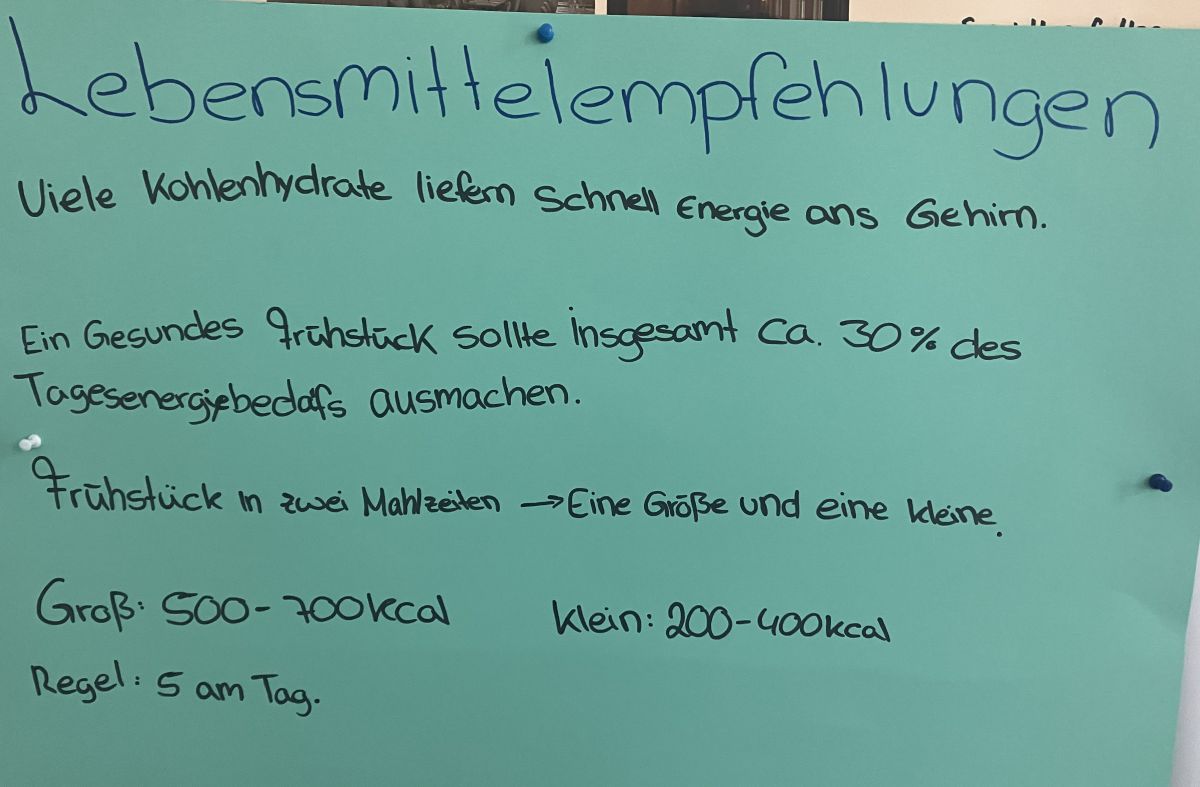 Lebensmittelempfehlungen
Viele Kohlenhydrate liefern Schnell Energie ans Gehirn.
Ein Gesundes Frühstück sollte insgesamt ca. 30% des
Tagesenergiebedafs ausmachen.
Frühstück in zwei Mahlzeiten → Eine Größe und eine kleine.
Groß: 500-700kcal Klein: 200-400kcal
Regel: 5 am Tag.